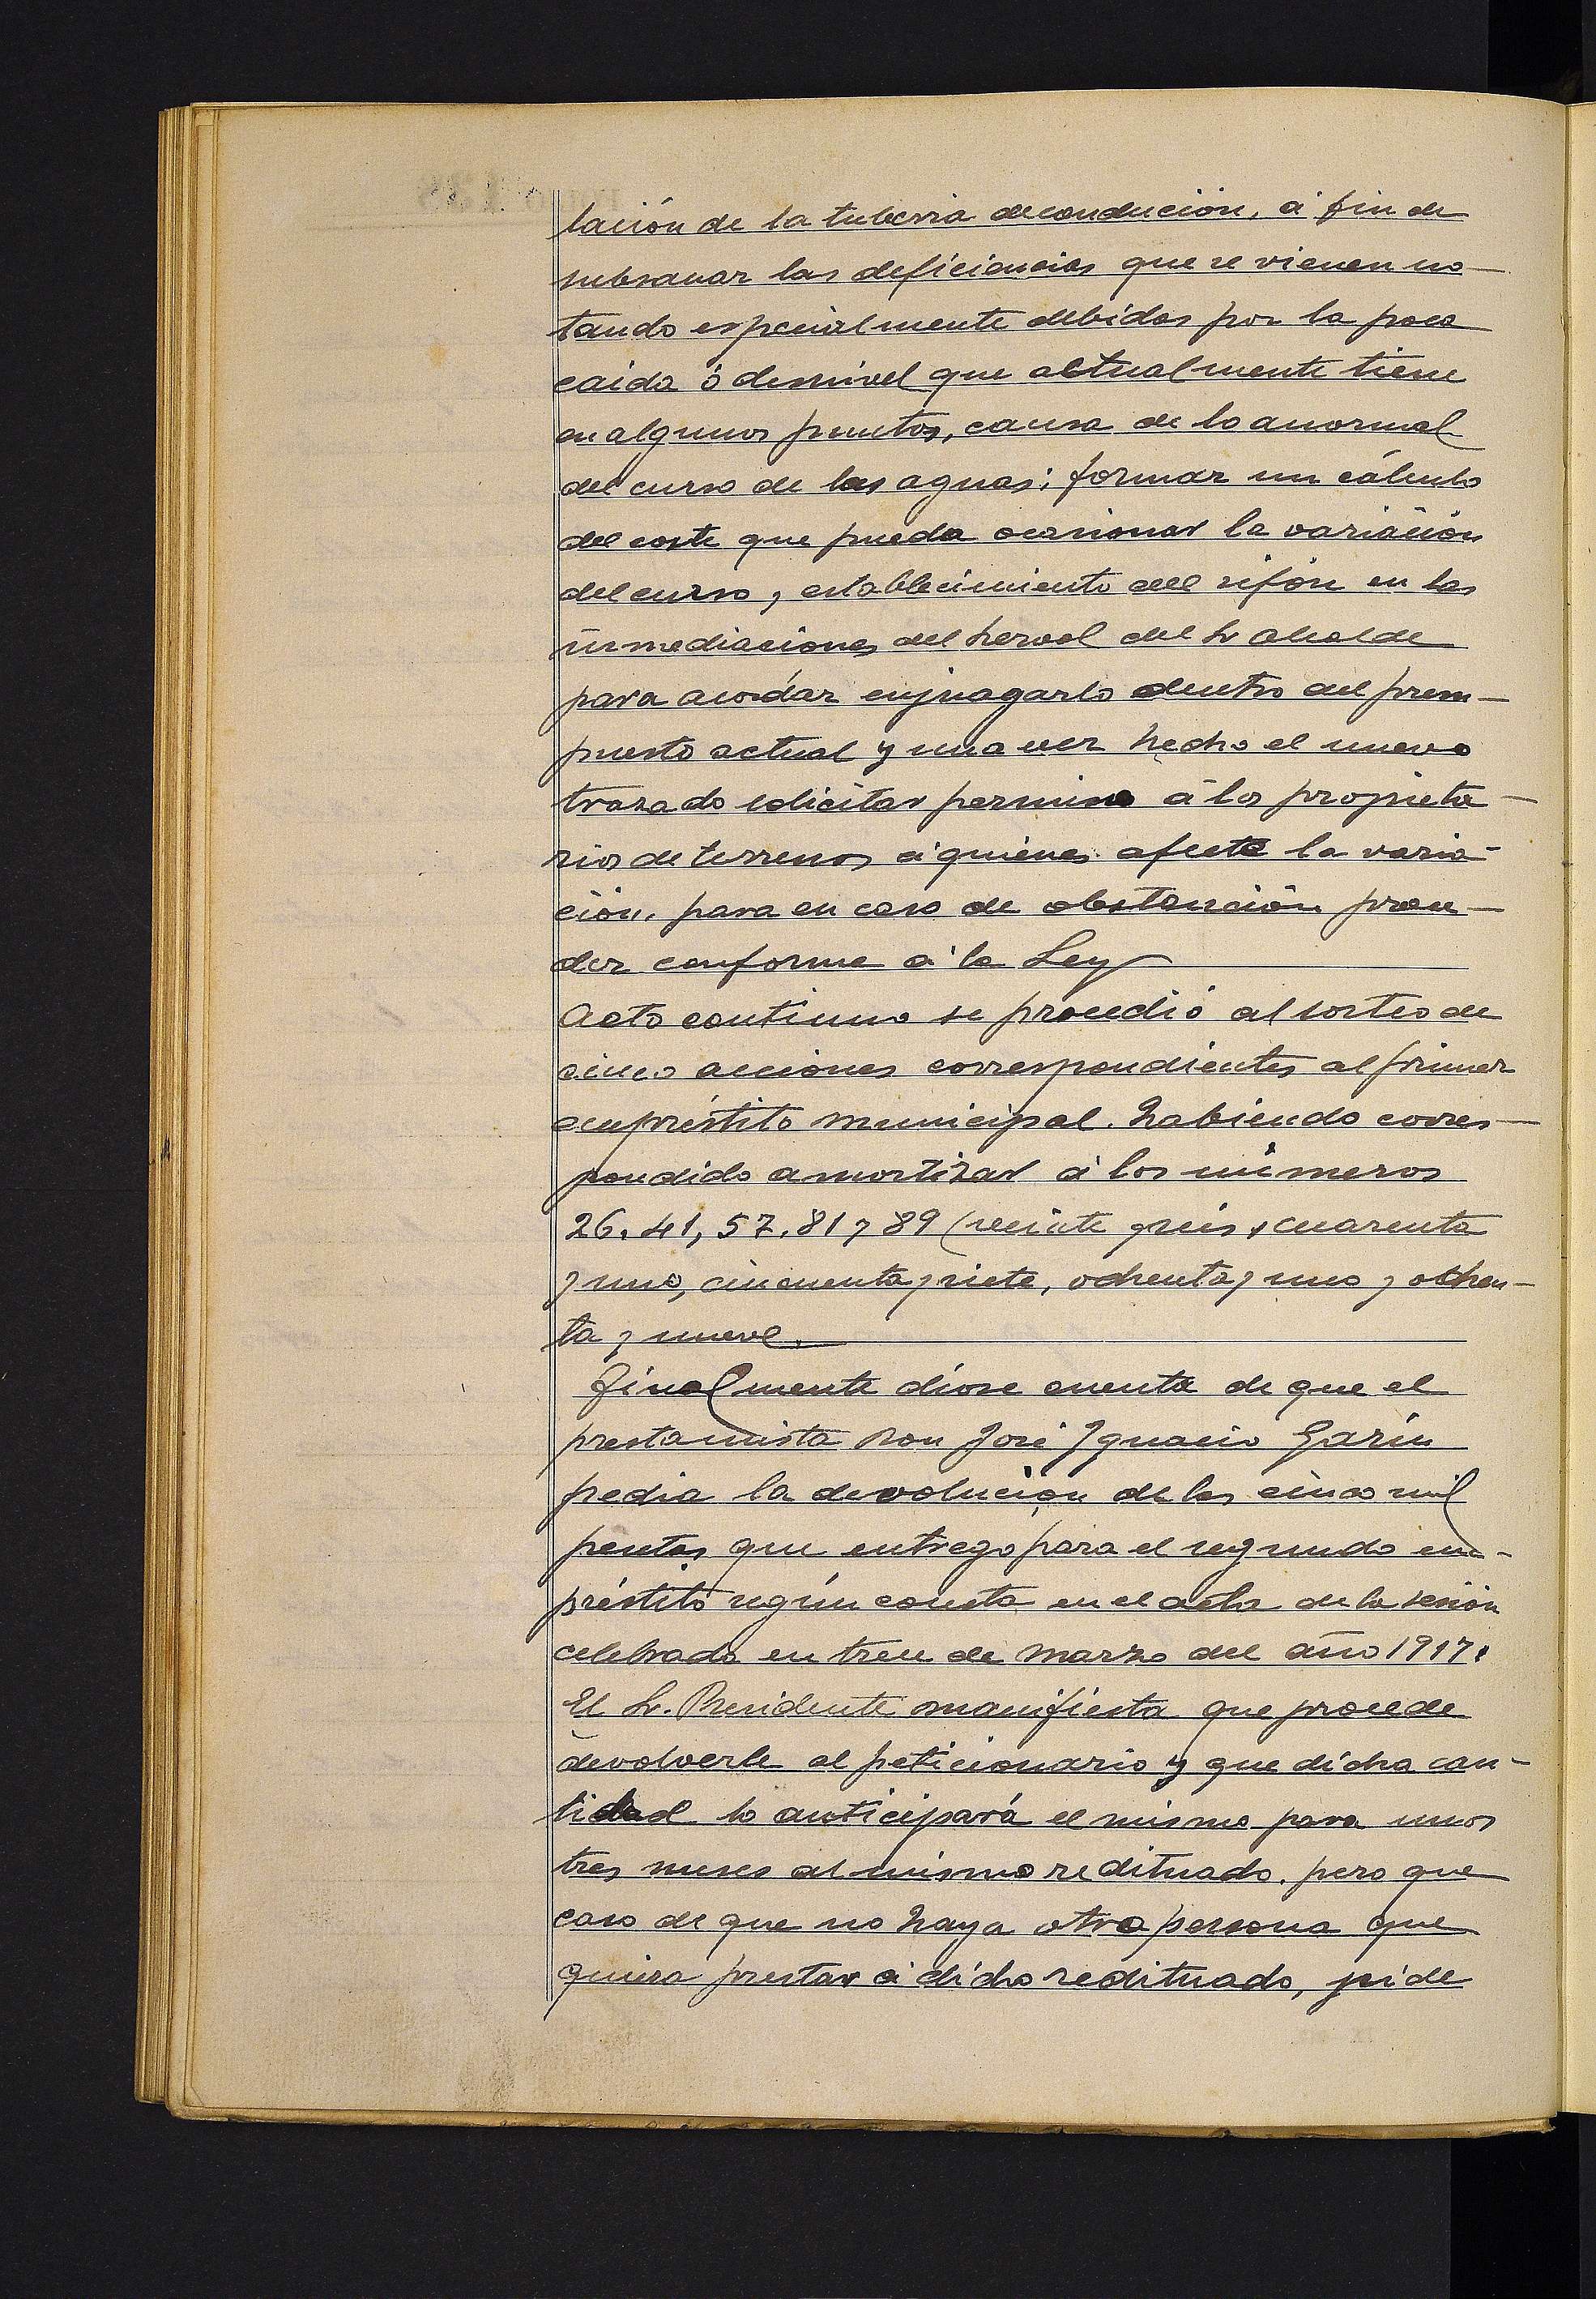 lación de la tuberria de conducción, á fin de
subsanar las deficiencias que se vienen no-
tando especialmente debidas por la poca
caida ó desnivel que actualmente tiene
en algunos puntos, causa de lo anormal
del curso de las aguas; formar un cálculo
del coste que pueda ocasionar la variación
del curso, establecimiento del sifón en las
inmediaciones del del Sr alcalde
para acordar enjuagarlo dentro del presu-
puesto actual y una vez hecho el nuevo
trazado solicitar permiso á los propieta-
rios de terrenos á quienes afecte la varia-
ción, para en caso de obstención proce-
der conforme á la Ley
Acto continuo se procedió al sorteo de
cinco acciones correspondientes al primer
empréstito municipal. habiendo corres-
pondido amortizar á los números
26, 41, 57, 81 y 89 (veinte y seis, cuarenta
y uno, cincuenta y siete, ochenta y uno y ochen-
ta y nueve.
Finalmente diose cuenta de que el
prestamista Don José Ignacio Garín
pedia la devolución de las cinco mil
pesetas que entrego para el segundo em-
préstito según consta en el acta de la sesión
celebrada en trece de Marzo del año 1917.
El Sr. Presidente manifiesta que procede
devolverle al peticionario y que dicha can-
tidad lo anticipará el mismo para unos
tres meses al mismo redituado. pero que
caso de que no haya otra persona que
quiera prestar á dicho redituado, pide